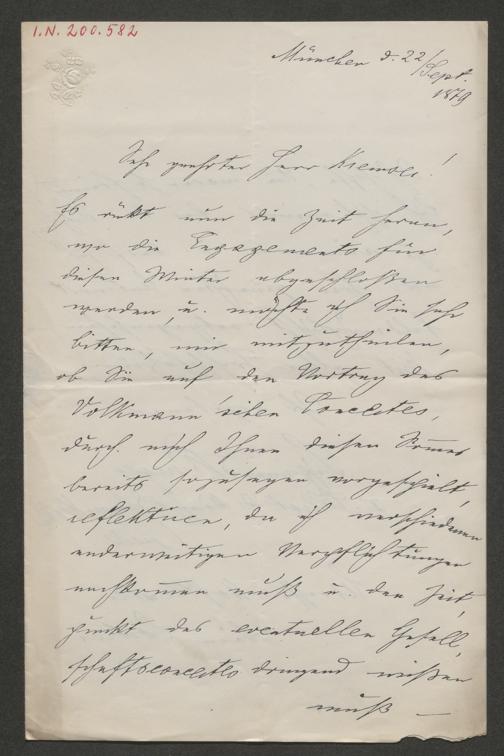 I.N. 200.582
München d. 22/Sept.
1879
Sehr geehrter Herr Kremser!
Es rückt nun die Zeit heran,
wo die Engagements für
diesen Winter abgeschloßen
werden, u. möchte ich Sie sehr
bitten, mir mitzutheilen,
ob Sie auf den Vortrag des
Volkmann'schen Concertes,
durch mich Ihnen diesen Sommer
bereits sozusagen vorgespielt,
reflektiren, da ich verschiedenen
anderweitigen Verpflichtungen
nachkommen muß u. den Zeit-
punkt des eventuellen Gesell-
schaftsconcertes dringend wißen
muß —